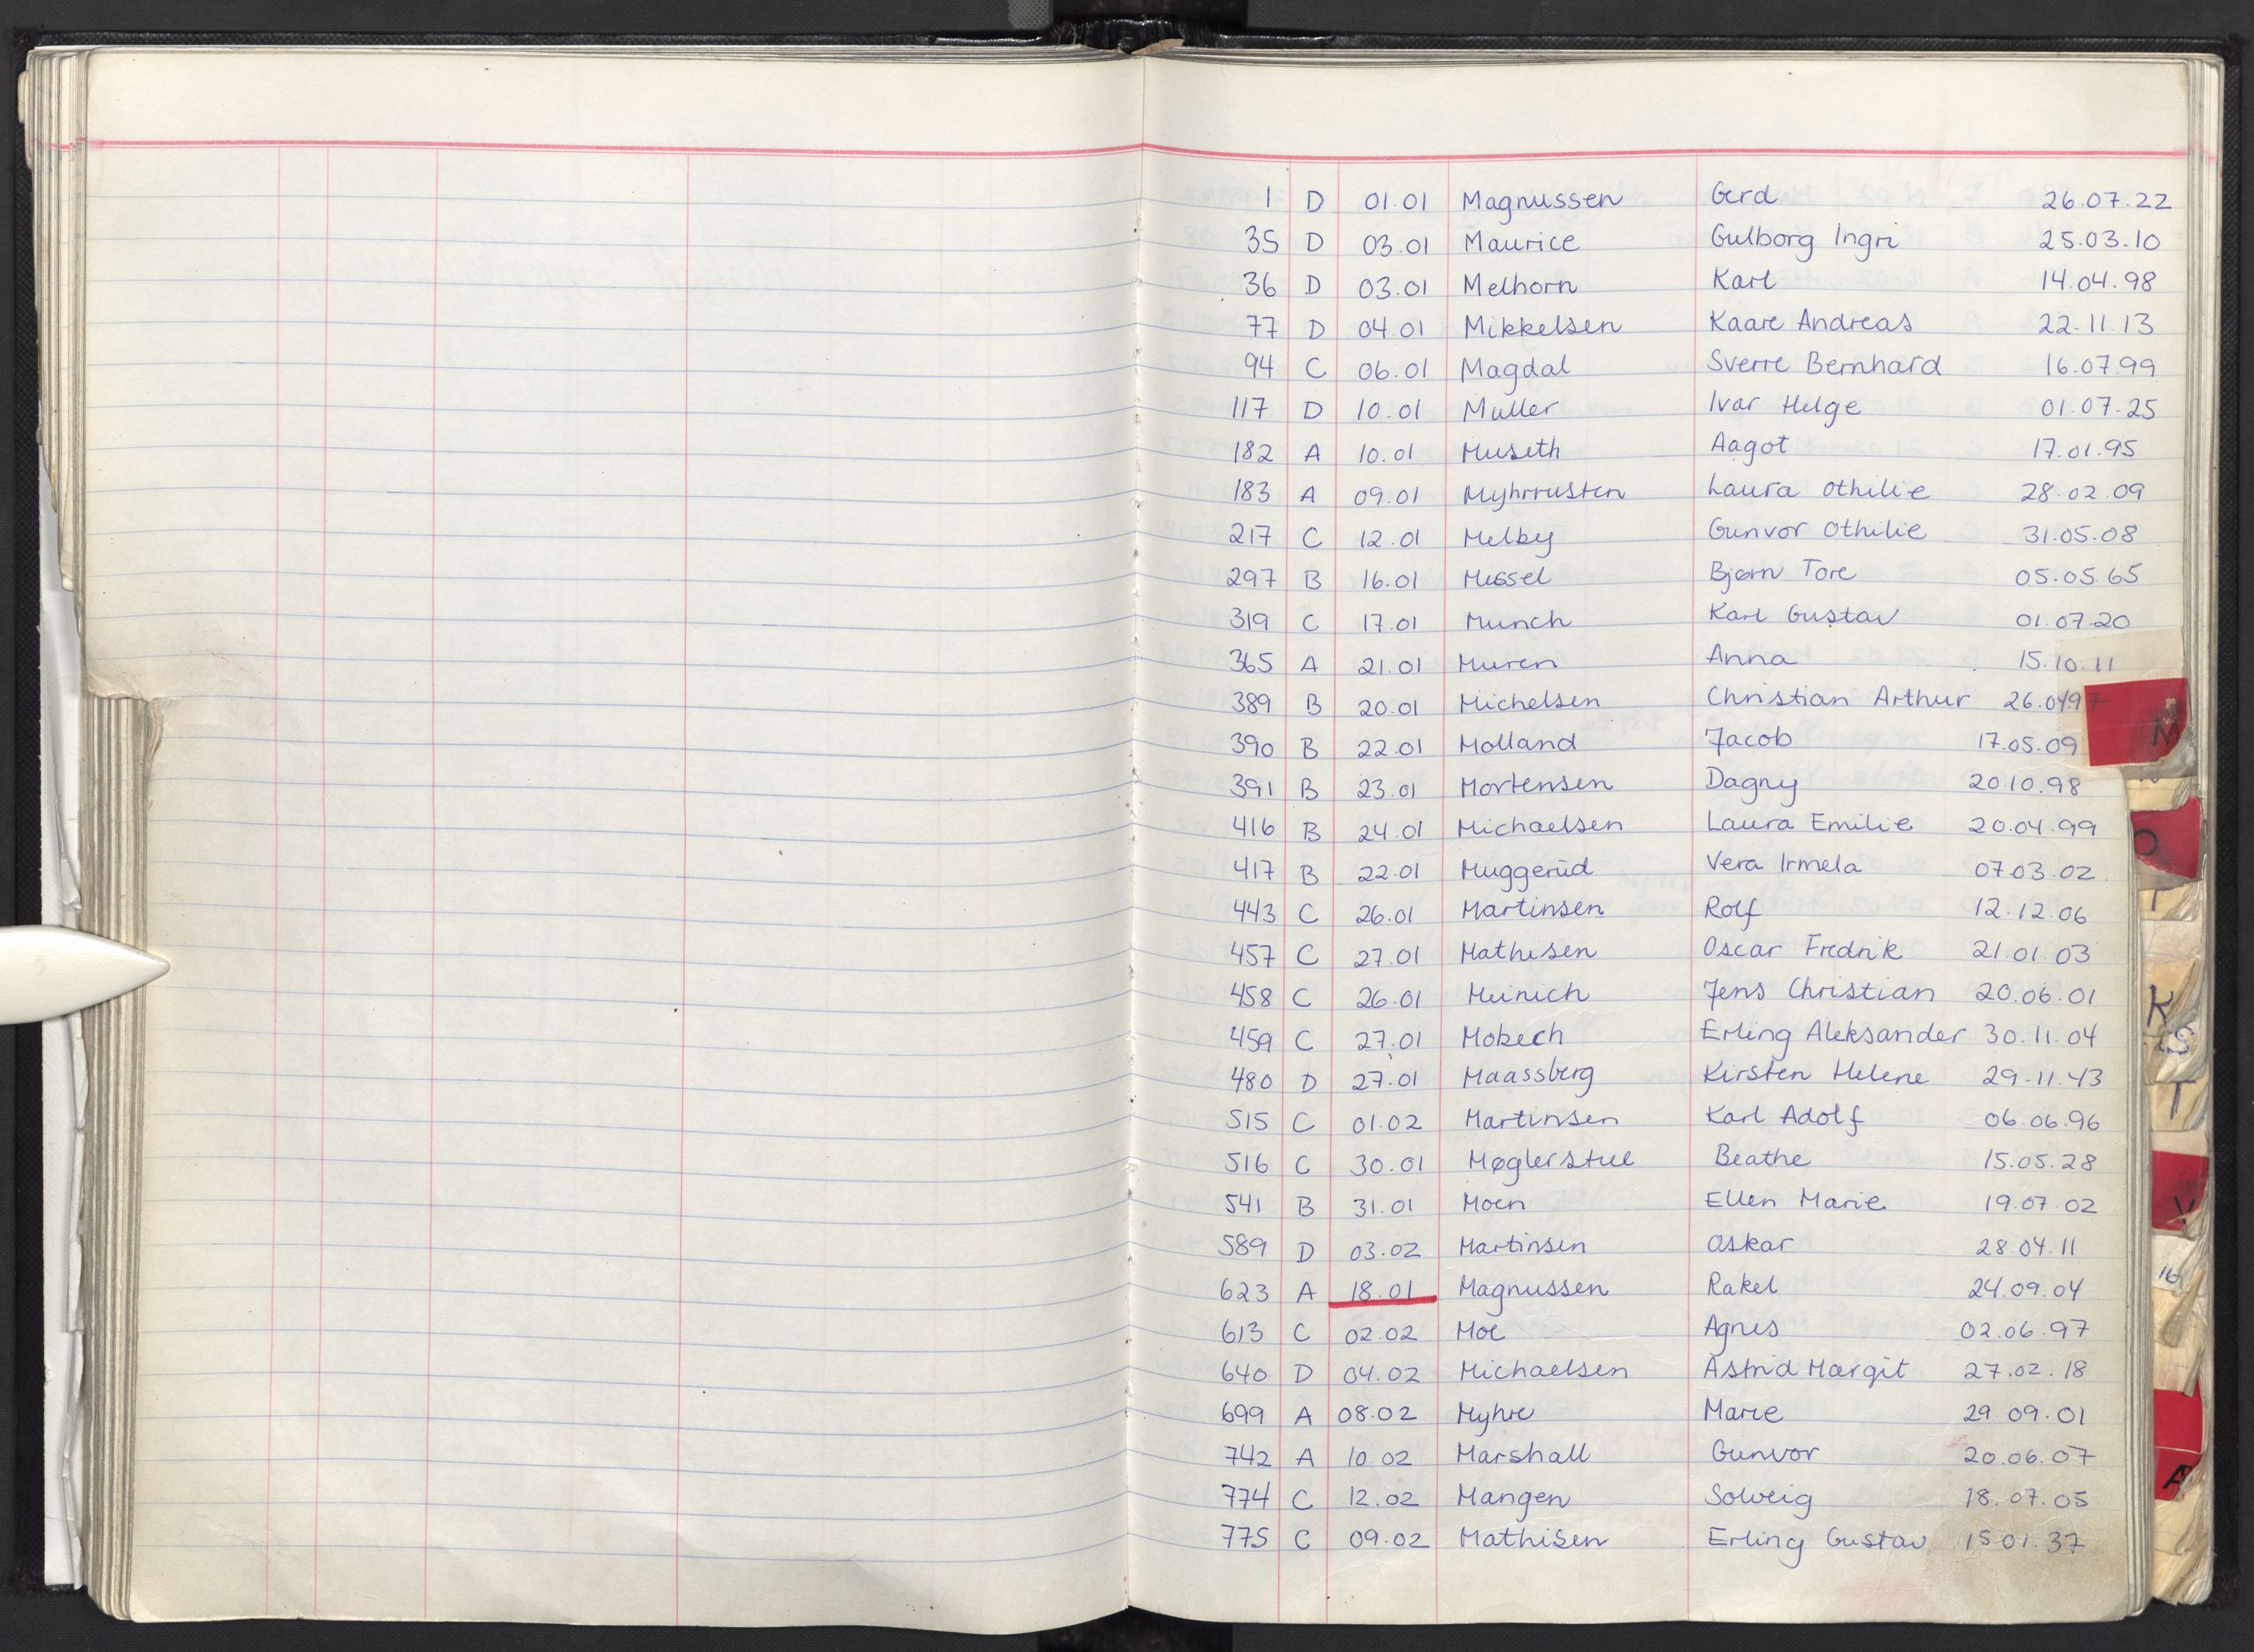 1 D 01.01 Magnussen Gerd 26.07.22
35 D 03.01 Maurice Gulborg Ingri 25.03.10
36 D 03.01 Melhorn Karl 14.04.98
77 D 04.01 Mikkelsen Kaare Andreas 22.11.13
94 C 06.01 Magdal Sverre Bernhard 16.07.99
117 D 10.01 Muller Ivar Helge 01.07.25
182 A 10.01 Museth Aagot 17.01.95
183 A 09.01 Myhrrusten Laura Othilie 28.02.09
217 C 12.01 Melby Gunvor Othilie 31.05.08
297 B 16.01 Messel Bjørn Tore 05.05.65
319 C 17.01 Munch Karl Gustav 01.07.20
365 A 21.01 Muren Anna 15.10.11
389 B 20.01 Michelsen Christian Arthur 26.04.97
390 B 22.01 Molland Jacob 17.05.09
391 B 23.01 Mortensen Dagny 20.10.98
416 B 24.01 Michaelsen Laura Emilie 20.04.99
417 B 22.01 Muggerud Vera Irmela 07.03.02
443 C 26.01 Martinsen Rolf 12.12.06
457 C 27.01 Mathisen Oscar Fredrik 21.01.03
458 C 26.01 Meinich Jens Christian 20.06.01
459 C 27.01 Mobech Erling Aleksander 30.11.04
480 D 27.01 Maassberg Kirsten Helene 29.11.43
515 C 01.02 Martinsen Karl Adolf 06.06.96
516 C 30.01 Møglerstue Beathe 15.05.28
541 B 31.01 Moen Ellen Marie 19.07.02
589 D 03.02 Martinsen Oskar 28.04.11
623 A 18.01 Magnussen Rakel 24.09.04
613 C 02.02 Moe Agnes 02.06.97
640 D 04.02 Michaelsen Astrid Margit 27.02.18
699 A 08.02 Myhre Marie 29.09.01
742 A 10.02 Marshall Gunvor 20.06.07
774 C 12.02 Mangen Solveig 18.07.05
775 C 09.02 Mathisen Erling Gustav 15.01.37
M
O
K
S
T
V
16
A